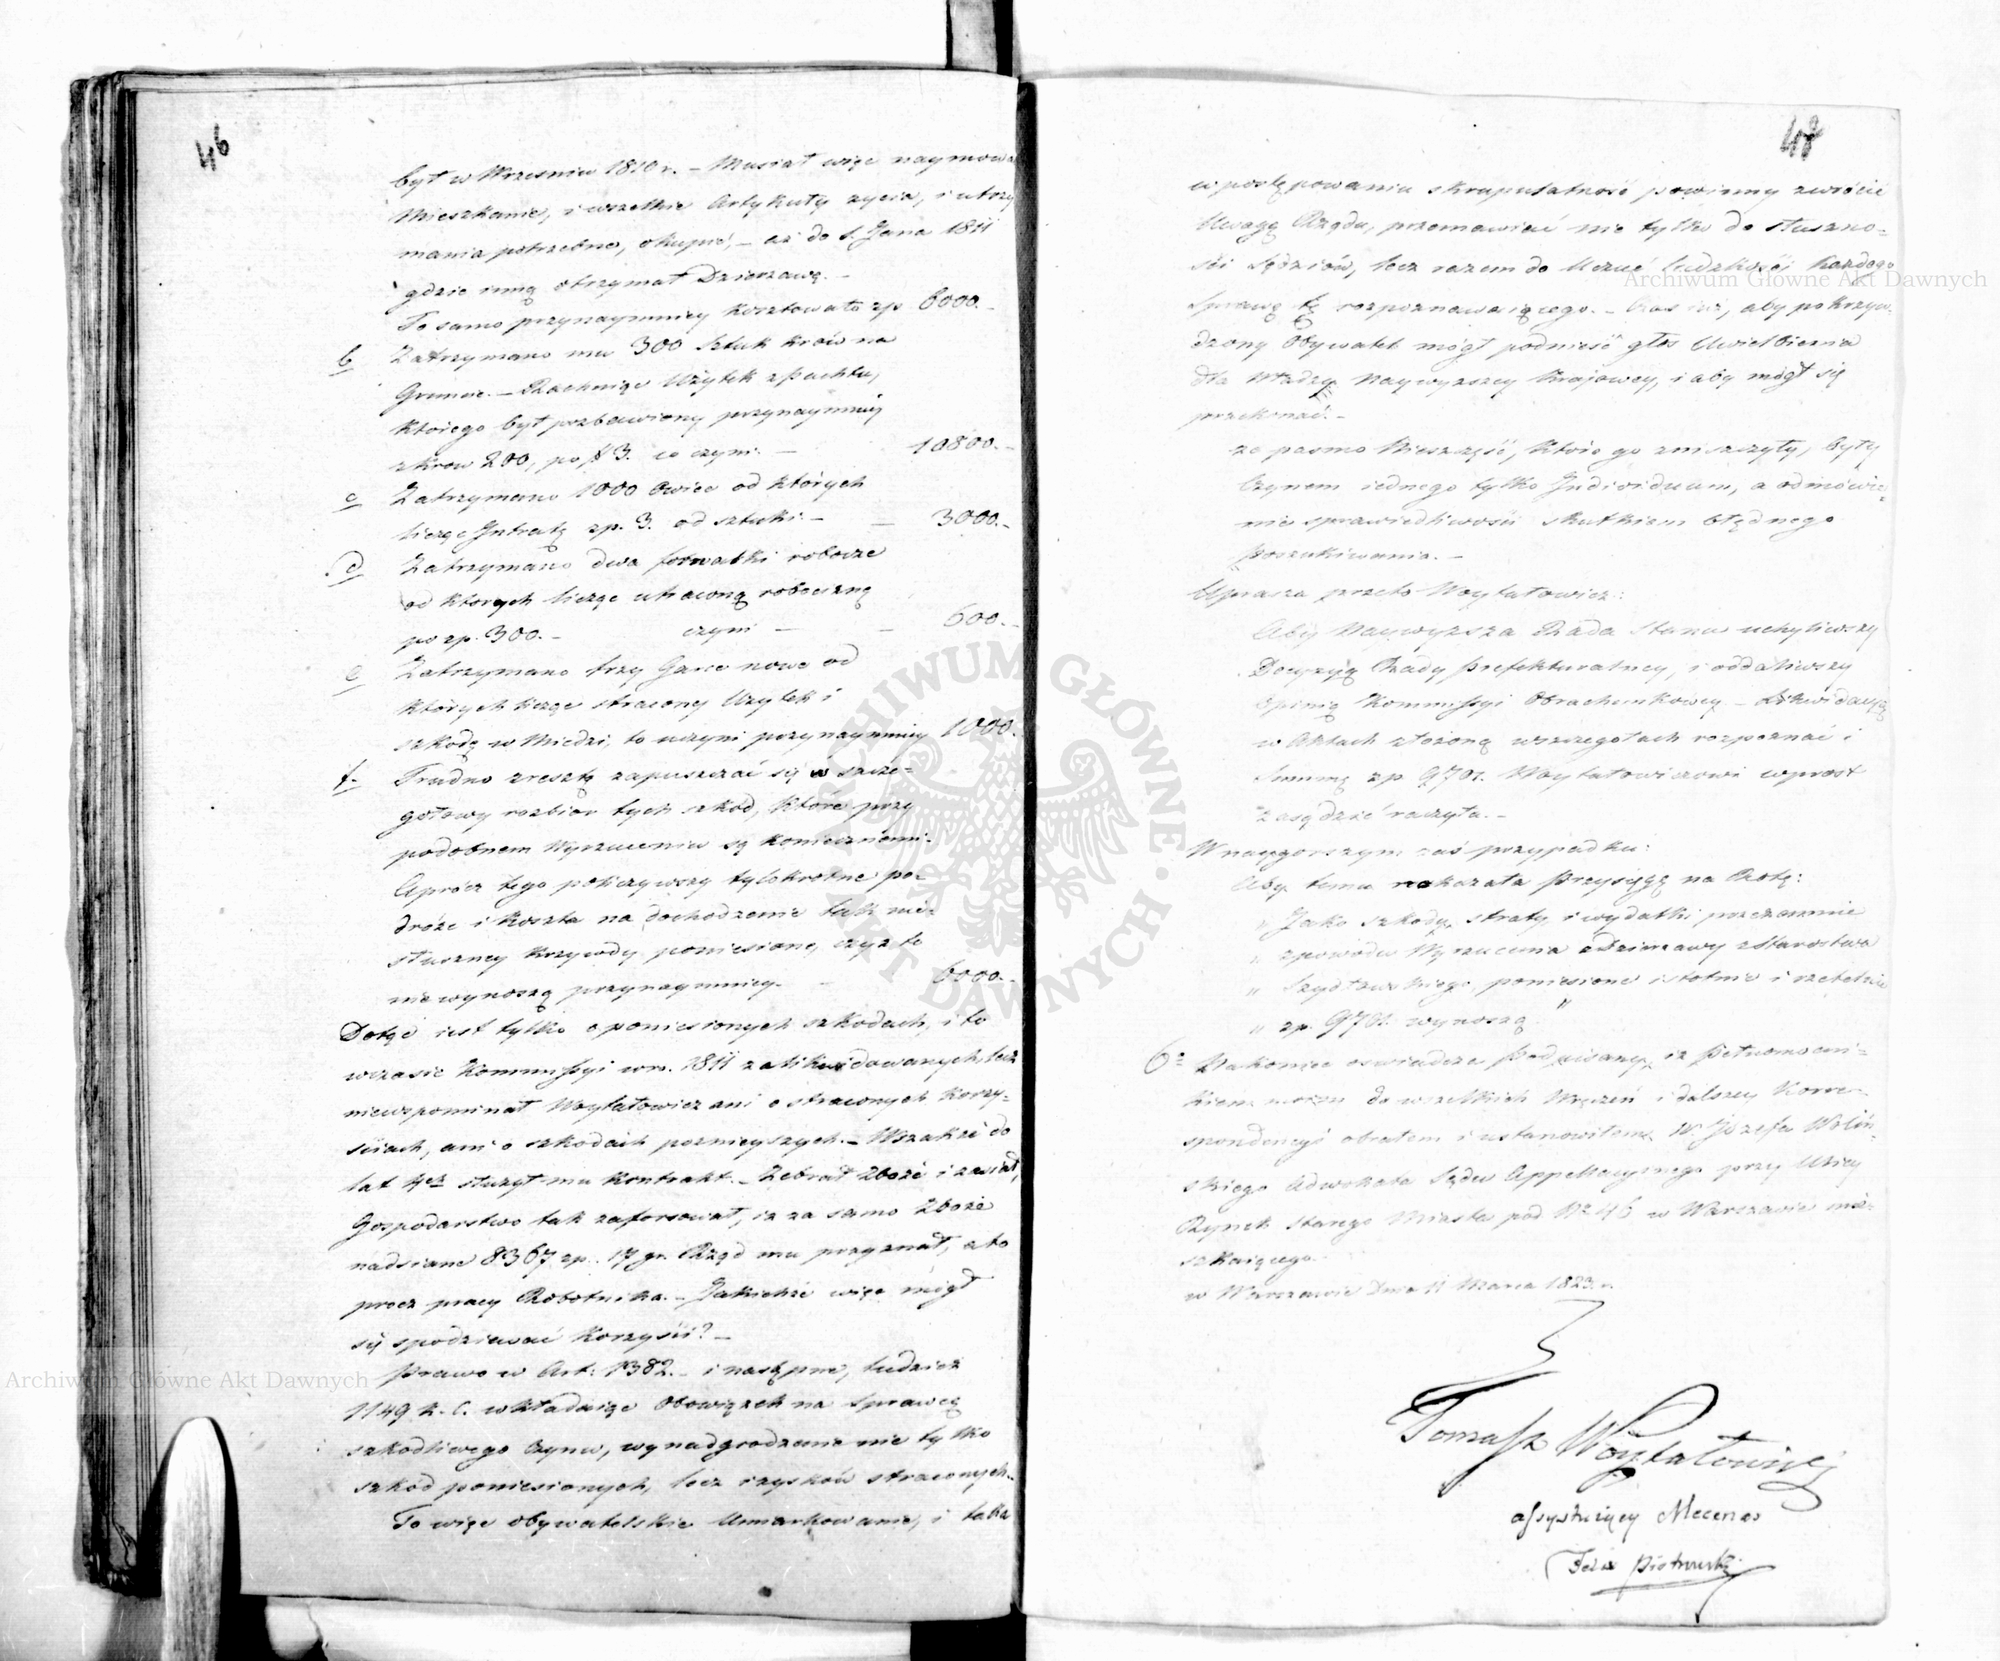 46
był w Wrzesniu 1810 r. – Musiał więc naymowa
Mieszkanie, i wszelkie Artykuły zycia, i utrzy
mania potrzebne, okupić, – aż do S. Jana 1811
gdzie inną otrzymał Dzierzawę. –
To samo przynaymniey kosztowało zp 6000. –
b Zatrzymano mu 300 Sztuk krów na
Gruncie. – Rachuiąc Użytek z Pachtu,
ktorego był pozbawiony przynaymniey
z krow 200, po # 3. co czyni. – 10800. –
c Zatrzymano 1000 Owiec od których
licząc Intratę zp. 3. od sztuki. – – 3000. –
d Zatrzymano dwa forwalki robocze
od ktorych licząc utraconą robociznę
po zp. 300. – czyni – – 600. –
e Zatrzymano trzy Garce nowe od
których licząc stracony Użytek i
szkodę w Miedzi, to uczyni przynaymniey 1000. –
f. Trudno zresztą zapuszczać się w szcze=
gołowy rozbior tych szkód, które przy
podobnem Wyrzuceniu są koniecznemi.
Oprócz tego policzywszy tylokrotne po=
dróże i koszta na dochodzenie tak nie=
słuszney krzywdy poniesione, czyz to
nie wynoszą przynaymniey. – 6000. –
Dotąd iest tylko o poniesionych szkodach, i to
wczasie Kommissyi w r. 1811 zalikwidowanych, lecz
niewspominał Woytatowicz ani o straconych korzy=
ściach, ani o szkodach poznieyszych. – Wszakże do
lat 4ch służył mu kontrakt. – Zebrał Zboże i zasiał,
Gospodarstwo tak zaforsował, iz za samo Zboże
nadsiane 8367 zp. 17 gr. Rząd mu przyznał, a to
procz pracy Robotnika. – Jakichże więc mógł
się spodziewać korzyści? –
Prawo w Art: 1382. – i nastąpne, tudzież
1149 K. C. wkładaiąc Obowiązek na Sprawcę
szkodliwego Czynu, wynadgrodzenie nie tylko
szkód poniesionych, lecz i zysków straconych. –
To więc obywatelskie Umiarkowanie, i taka
48
w postępowaniu skrupulatność powinny zwrócić
Uwagę Rządu, przemawiać nie tylko do słuszno=
ści Sędziów, lecz razem do Uczuć ludzkości każdego
Sprawę tę rozpoznawaiącego. – Czas iuż, aby pokrzyw=
dzony Obywatel mógł podnieść głos Uwielbienia
dla Władzy Naywyzszey Kraiowey, i aby mógł się
przekonać: –
ze pasmo Nieszczęść, które go zniszczyły, były
Czynem iednego tylko Individuum, a odmówie=
nie sprawiedliwości skutkiem błędnego
Poszukiwania. –
Uprasza przeto Woytatowicz:
Aby Naywyzsza Rada Stanu uchyliwszy
Decyzyą Rady Prefekturalney, i oddaliwszy
Opinią Kommissyi Obrachunkowey – Likwidacyą
w Aktach złożoną w szczegołach rozpoznać i
Summę zp. Woytatowiczowi wprost
zasądzić raczyła. –
W naygorszym zaś przypadku:
Aby temu nakazała Przysięgę na Rotę:
„ Jako szkody, straty, i wydatki przezemnie
„ z powodu Wyrzucenia z Dzierzawy z Starostwa
„ Szydłowskiego, poniesione istotnie i rzetelnie
„ zp. wynoszą "
6º Nakoniec oswiadcza Podpisany, iz Pełnomocni=
kiem moim do wszelkich Wręczeń i dalszey Korre=
spondencyi obrałem i ustanowiłem W. Józefa Woliń=
skiego Adwokata Sądu Appellacyinego przy Ulicy
Rynek Starego Miasta pod Nr 46 w Warszawie mie=
szkaiącego.
w Warszawie Dnia 11 Marca 1823 r.
Tomasz Woytatowicz
assystuiący Mecenas
Felix Piotrowski
Archiwum Główne Akt Dawnych
Archiwum Główne Akt Dawnych
ARCHIWUM GŁÓWNE AKT DAWNYCH